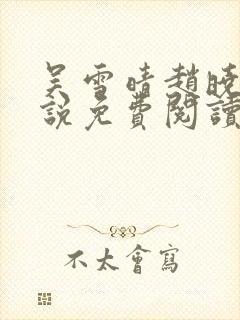 吴雪晴趙曉
說免費閱讀
不太會寫